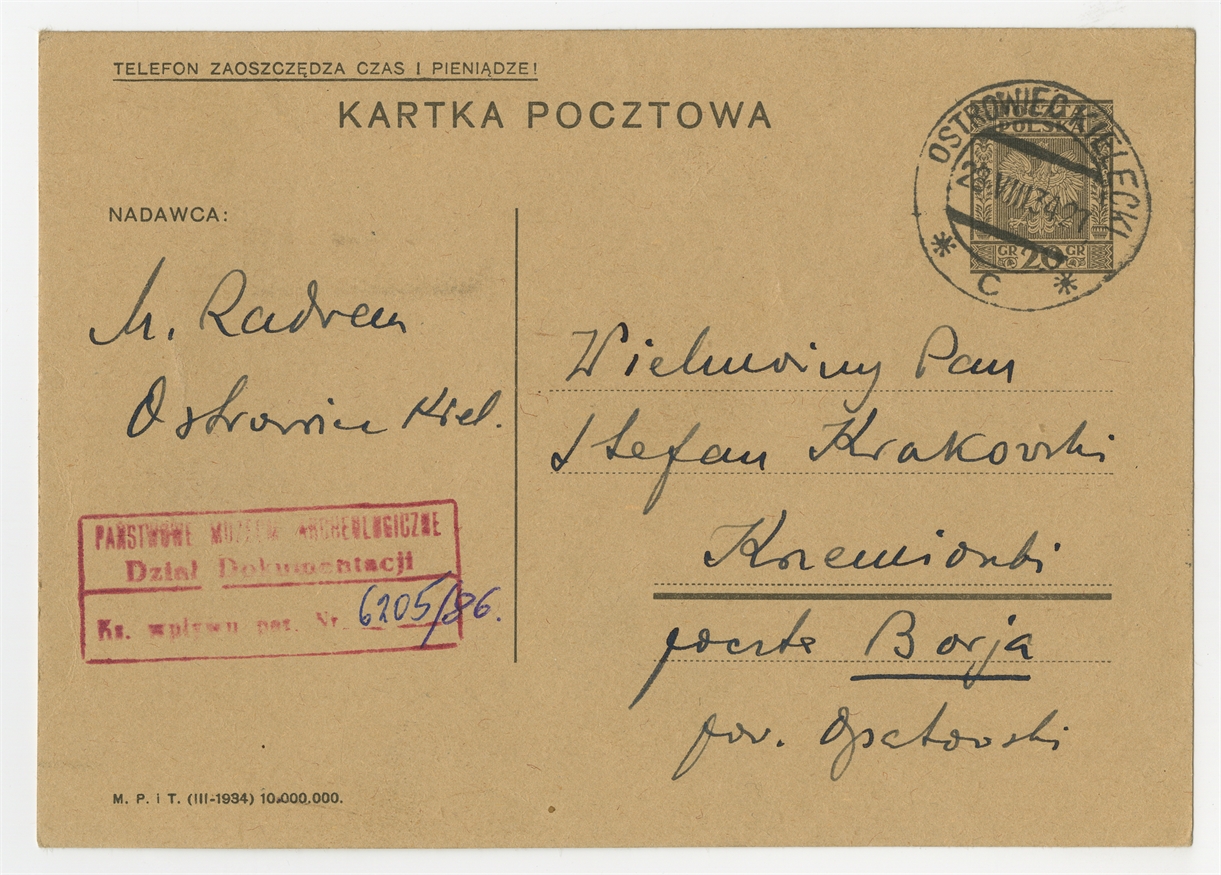 TELEFON ZAOSZCZĘDZA CZAS I PIENIĄDZE!
KARTKA POCZTOWA
OSTROWIEC KIELECKI
POLSKA
28.VIII.34.21
GR 20 GR
* C *
NADAWCA:
M. Radwan
Ostrowiec Kiel.
Wielmożny Pan
Stefan Krakowski
Krzemionki
poczta Borja
pow. Opatowski
PAŃSTWOWE MUZEUM ARCHEOLOGICZNE
Dział Dokumentacji
Ks. wpływu poz. Nr. 6205/86.
M. P. i T. (III-1934) 10.000.000.